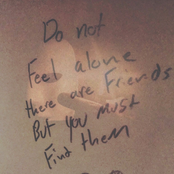 Do not
Feel alone
there are Friends
But you must
Find them